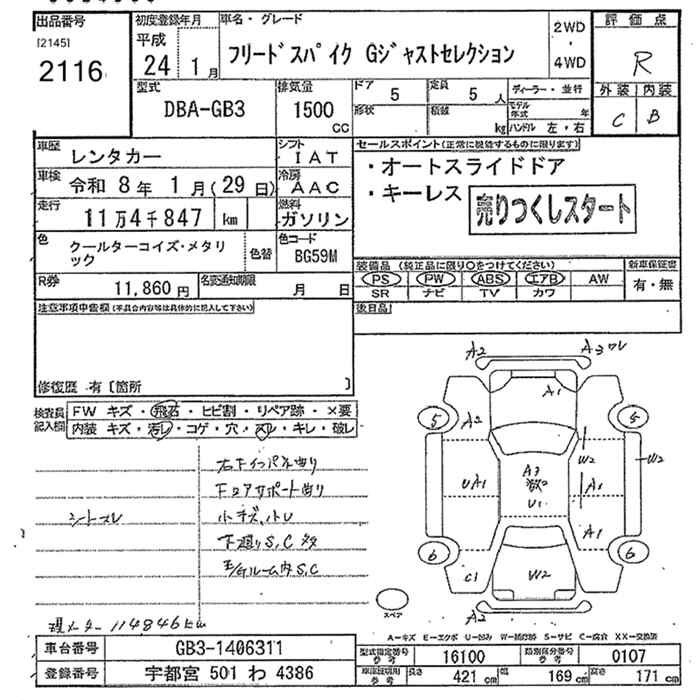 出品番号 初度登録年月 車名・グレード 評価点
[2145] 平成 2WD
2116 24 1月 フリードスパイク Gジャストセレクション ・ R
4WD
型式 排気量 ドア 定員 ディーラー・並行 外装 内装
DBA-GB3 1500 5 5人 モデル年式 年 C B
cc 形状 積載 kg ハンドル 左・右
車歴 レンタカー シフト IAT セールスポイント(正常に機能するものに限ります)
車検 令和 8年 1月(29日) 冷房 AAC ・オートスライドドア
走行 11万4千847 km 燃料 ガソリン ・キーレス 売りつくしスタート
色 クールターコイズ・メタリック 色替 色コード BG59M
装備品 (純正品に限り○をつけてください) 新車保証書
R券 11,860円 名変通知期限 月 日 PS PW ABS エアB AW 有・無
SR ナビ TV カワ
注意事項申告欄(不具合内容等は具体的に記入して下さい) 後日品
修復歴 有〔箇所 〕
検査員記入欄 FW キズ・飛石・ヒビ割・リペア跡・×要
内装 キズ・汚レ・コゲ・穴・スリ・キレ・破レ
右下インパネ曲り
下コアサポート曲り
シートスレ 小キズ、小U
下廻りS,C多
E/Gルーム内S,C
現メーター 114846km
A2 A3ワレ
A1
5 A2 5
W2 W2
UA1 A3 数 U1 A1
A1
6 6
C1 W2
A2
スペア
A-キズ E-エクボ U-凹み W-補修跡 S-サビ C-腐食 XX-交換済
車台番号 GB3-1406311 型式指定番号 参考 16100 類別区分番号 参考 0107
登録番号 宇都宮 501 わ 4386 参考 長さ 421 cm 幅 169 cm 高さ 171 cm